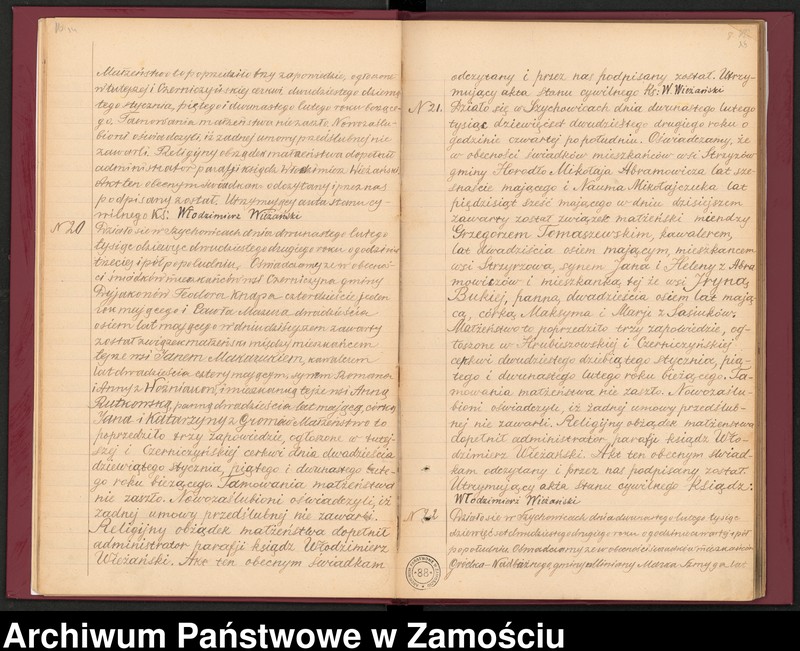 Małżeństwo to poprzedziło trzy zapowiedzie, ogłoszone
w tutejszej i Czerniczyńskiej cerkwi dwudziestego dziewią-
tego stycznia, piątego i dwunastego lutego roku bieżące-
go. Tamowania małżeństwa nie zaszło. Nowozaślu-
bieni oświadczyli, iż żadnej umowy przedślubnej nie
zawarli. Religijny obżądek małżeństwa dopełnił
administrator parafji ksiądz Włodzimierz Wieżański.
Akt ten obecnym świadkam odczytany i przez nas
podpisany został. Utrzymujący akta stanu cy-
wilnego Ks: Włodzimierz Wieżański
N 20
Działo się w Szychowicach dnia dwunastego lutego
tysiąc dziewięćset dwudziestego drugiego roku o godzinie
trzeciej i pół popołudniu. Oświadczamy, że w obecnoś-
ci świadków mieszkańców wsi Czerniczyna gminy
Dyjakonów Teodora Knapa czterdzieści jeden
rok mającego i Pawła Mazura dwadzieścia
osiem lat mającego w dniu dzisiejszem zawarty
został związek małżeński między mieszkańcem
tejże wsi Janem Makaruklem, kawalerem
lat dwadzieścia cztery mającym, synem Romana
i Anny z Woźniaków, i mieszkanką tejże wsi Anną
Rutkowską, panną dwadzieścia lat mającą, córką
Jana i Katarzyny z Gromków. Małżeństwo to
poprzedziło trzy zapowiedzie, ogłoszone w tutej-
szej i Czerniczyńskiej cerkwi dnia dwadzieścia
dziewiątego stycznia, piątego i dwunastego lute-
go roku bieżącego. Tamowania małżeństwa
nie zaszło. Nowozaślubieni oświadczyli, iż
żadnej umowy przedślubnej nie zawarli.
Religijny obżądek małżeństwa dopełnił
administrator parafji ksiądz Włodzimierz
Wieżański. Akt ten obecnym świadkam
odczytany i przez nas podpisany został. Utrzy-
mujący akta stanu cywilnego Ks: W. Wieżański
N 21.
Działo się w Szychowicach dnia dwunastego lutego
tysiąc dziewięćset dwudziestego drugiego roku o
godzinie czwartej popołudniu. Oświadczamy, że
w obecności świadków mieszkańców wsi Strzyżów
gminy Horodło Mikołaja Abramowicza lat sze-
snaście mającego i Nauma Mikołajczuka lat
pięćdziesiąt sześć mającego w dniu dzisiejszem
zawarty został związek małżeński miendzy
Grzegorzem Tomaszewskim, kawalerem,
lat dwadzieścia osiem mającym, mieszkancem
wsi Strzyżowa, synem Jana i Heleny z Abra
mowiczów i mieszkanką tej że wsi Iryną
Bukiej, panną, dwadzieścia osiem lat mają-
cą, córką Maksyma i Marji z Sasiuków.
Małżeństwo to poprzedziło trzy zapowiedzie, og-
łoszone w Hrubieszowskiej i Czerniczyńskiej
cerkwi dwudziestego dziewiątego stycznia, pią-
tego i dwunastego lutego roku bieżącego. Ta-
mowania małżeństwa nie zaszło. Nowozaślu-
bieni oświadczyli, iż żadnej umowy przedślub-
nej nie zawarli. Religijny obżądek małżeństwa
dopełnił administrator parafji ksiądz Wło-
dzimierz Wieżański. Akt ten obecnym świad-
kam odczytany i przez nas podpisany został.
Utrzymujący akta stanu cywilnego ksiądz:
Włodzimierz Wieżański
N 22
Działo się w Szychowicach dnia dwunastego lutego tysiąc
dziewięćset dwudziestego drugiego roku o godzinie czwartej i pół
popołudniu. Oświadczamy, że w obecności świadków mieszkańców
Gródka-Nadbużnego gminy lat
88
Archiwum Państwowe w Zamościu